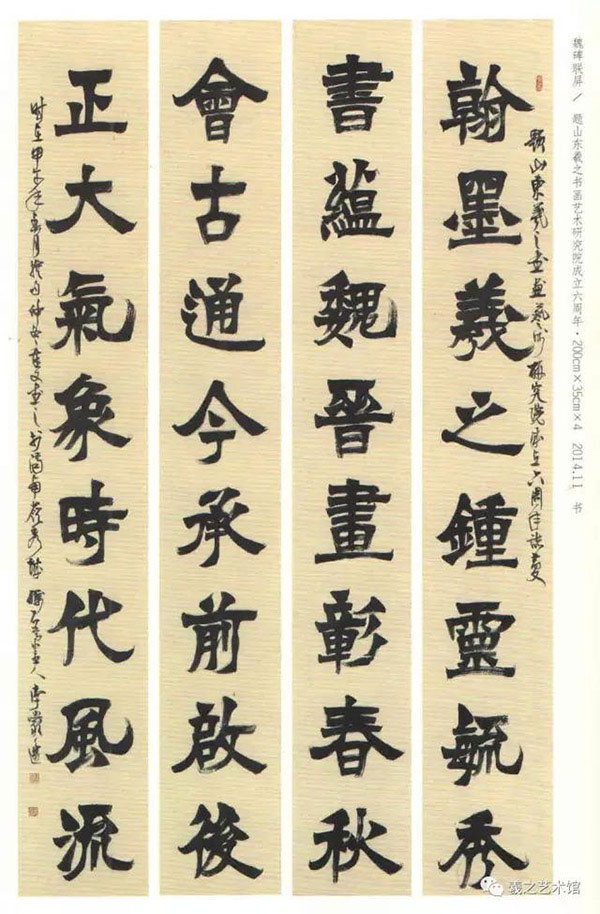 魏碑联屏 / 题山东羲之书画艺术研究院成立六周年·200cm×35cm×4 2014.11 书
題山東羲之書畫藝術研究院成立六周年誌慶
翰墨羲之鍾靈毓秀
書蘊魏晉畫彰春秋
會古通今承前啟後
正大氣象時代風流
時在甲午年
羲之艺术馆